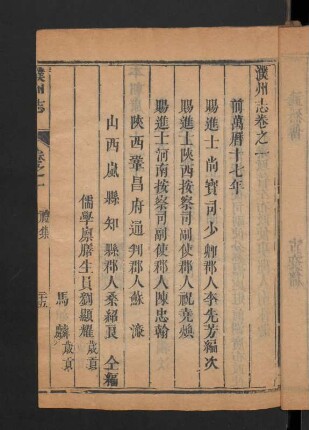 濮州志卷之一
前萬曆十七年
賜進士尚寶司少卿郡人李先芳編次
賜進士陝西按察司副使郡人祝堯煥
賜進士河南按察司副使郡人陳忠翰
陝西鞏昌府通判郡人蘇濠
山西嵐縣知縣郡人桑紹良 仝編
儒學廩膳生員劉顯耀歲貢
馬麟歲貢
濮州志
卷之一